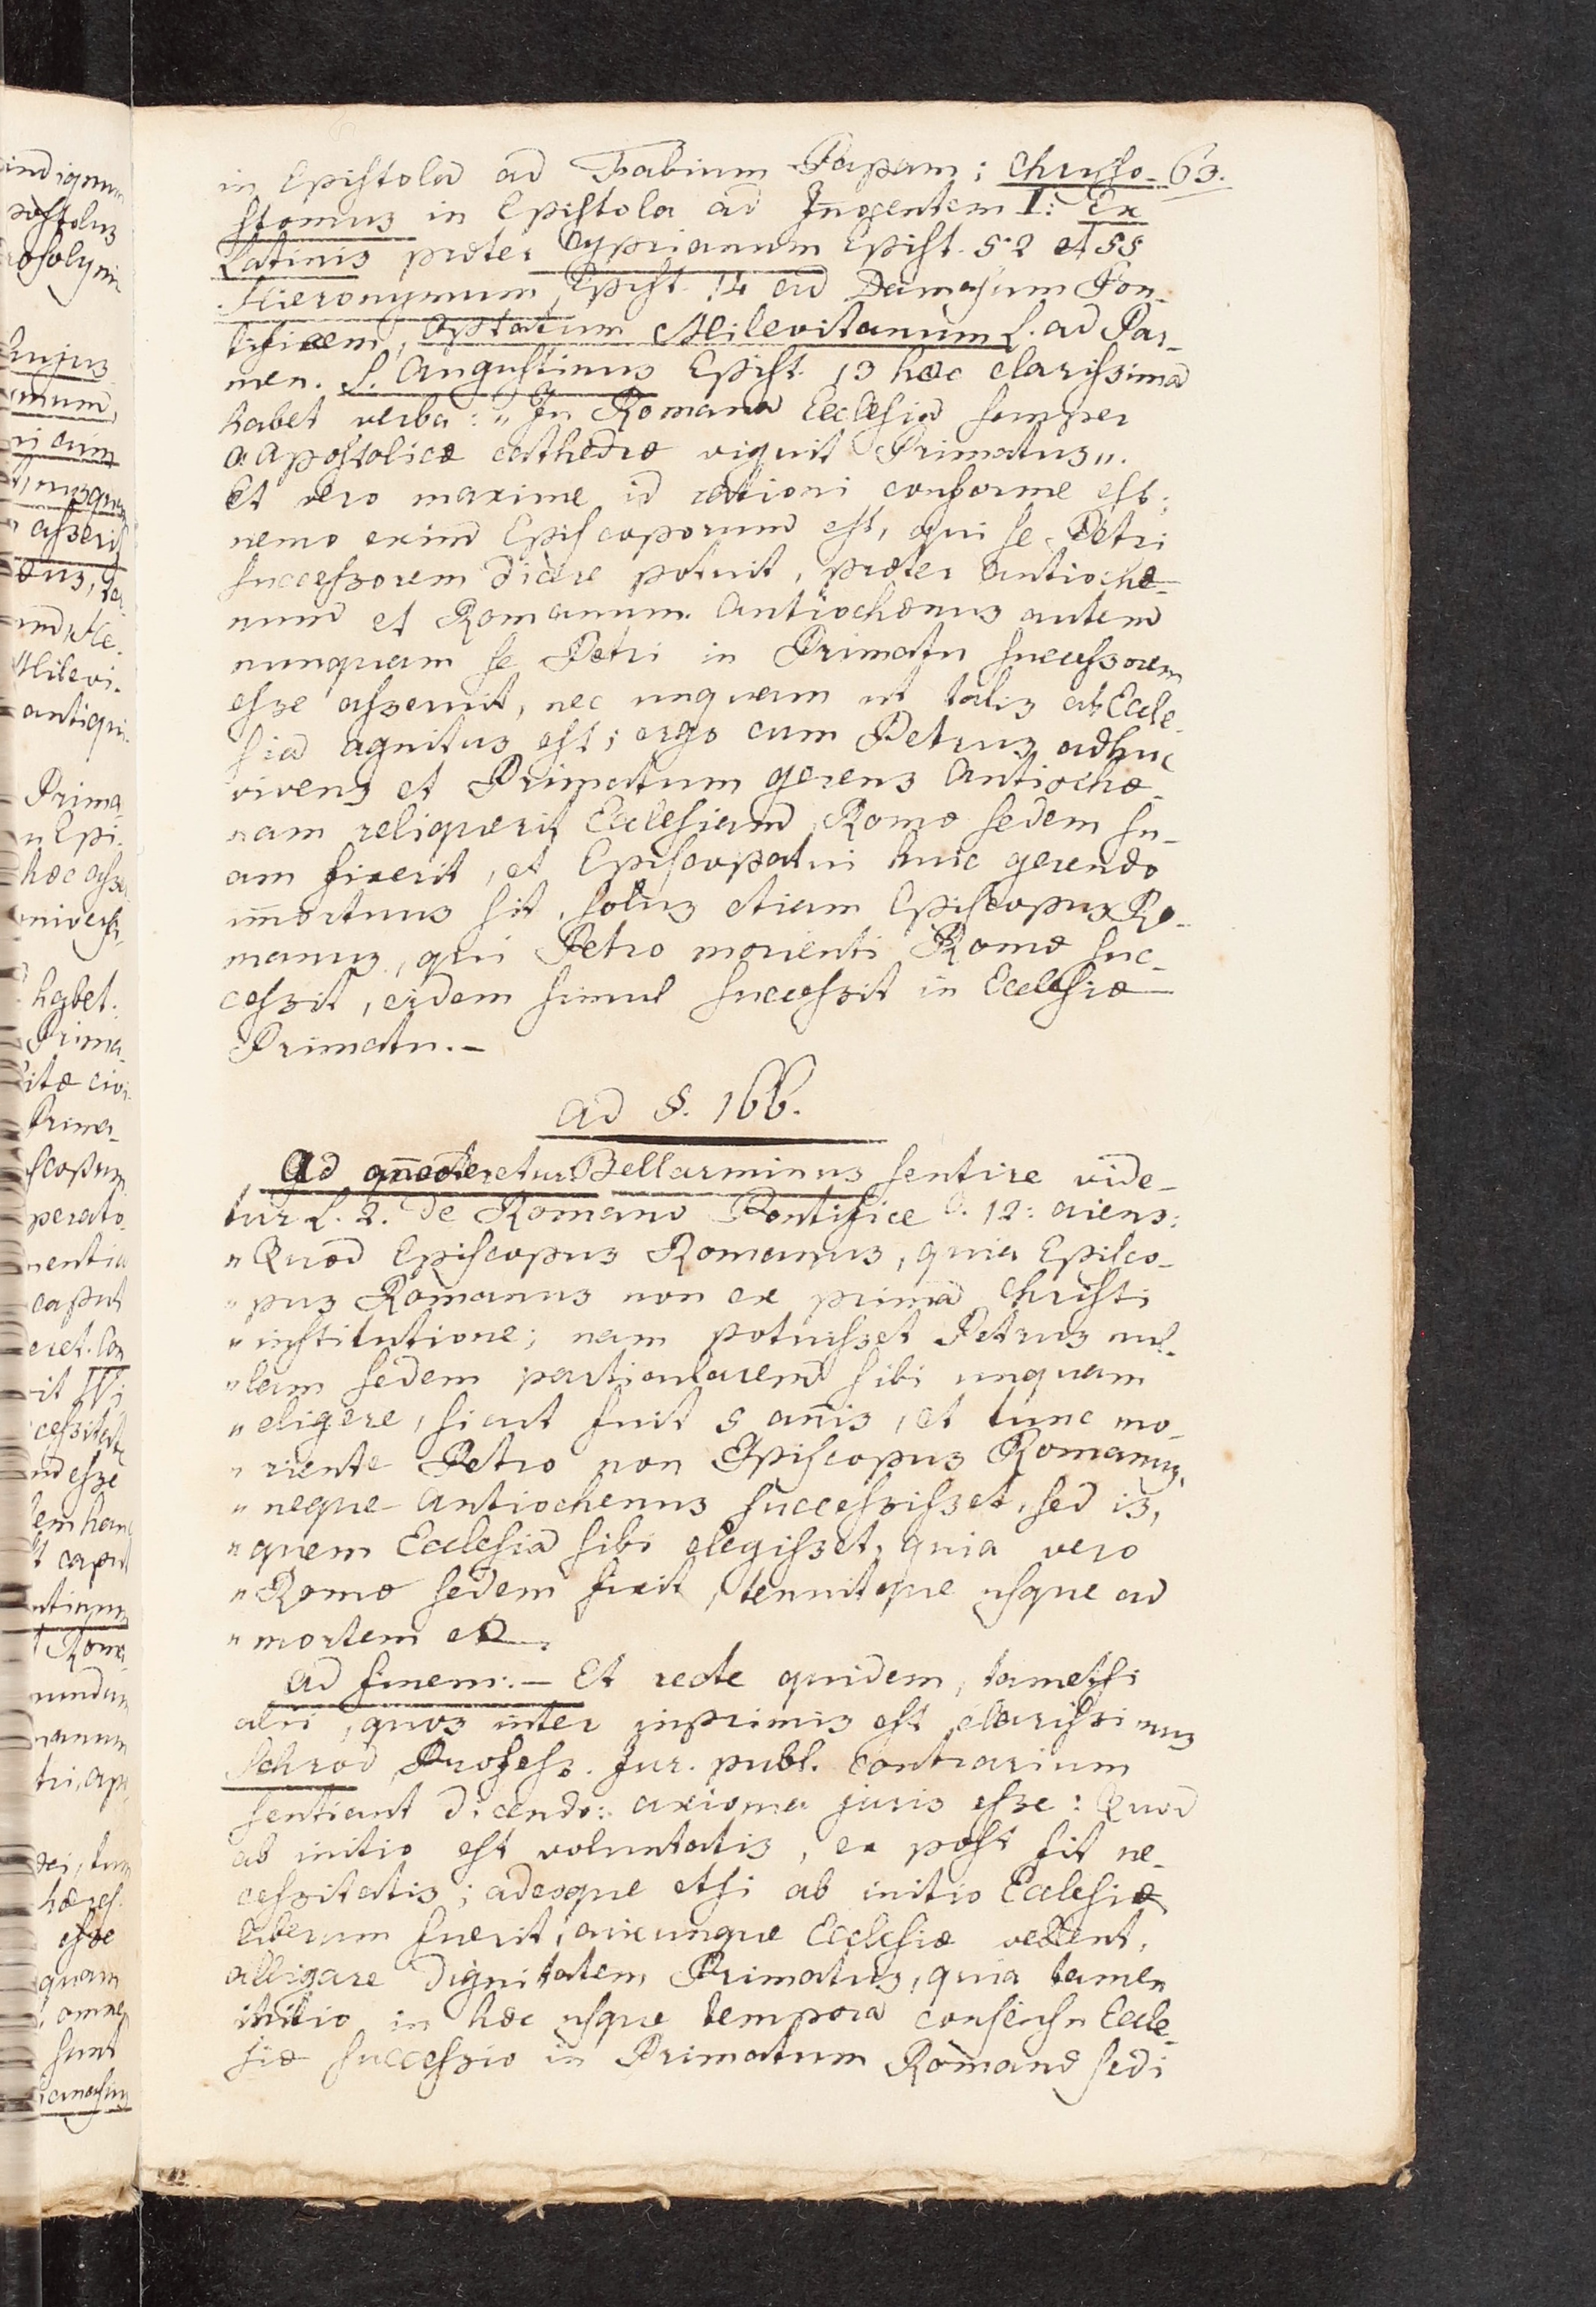 63.
in Epistola ad Fabium Papam; Chryso-
stomus in Epistola ad Innocentem I: Ex
Latinis præter Cyprianum Epist. 52 et 55
Hieronymum, Epist. 14 ad Damasum Pon-
tificem, Optatum Milevitanum L. ad Par-
men. S. Augustinus Epist. 13 hæc clarissima
habet verba: „ In Romana Ecclesia semper
a Apostolicæ cathedræ viguit Primatus„.
Et vero maxime id rationi conforme est;
nemo enim Episcoporum est, qui se Petri
successorem dicere potuit, præter Antioche-
num et Romanum. Antiochenus autem
nunquam se Petri in Primatu successorem
esse asseruit, nec unquam ut talis ab Eccle-
sia agnitus est; ergo cum Petrus adhuc
vivens et Primatum gerens Antioche-
nam reliquerit Ecclesiam, Romæ sedem su-
am fixerit, et Episcopatui huic gerendo
immortuus sit, solus etiam Episcopus Ro-
manus, qui Petro morienti Romæ suc-
cessit, eidem simul successit in Ecclesiæ
Primatu.-
ad §. 166.
Ad Bellarminus sentire vide-
tur L. 2. de Romano Pontifice C. 12: aiens:
„ Quod Episcopus Romanus, quia Episco-
„ pus Romanus non ex prima Christi
„ institutione; nam potuisset Petrus nul-
„ lam sedem particularem sibi unquam
„ eligere, sicut fuit 5 annis, et tunc mo-
„ riente Petro non Episcopus Romanus,
„ neque Antiochenus successisset, sed is,
„ quem Ecclesia sibi elegisset, quia vero
„ Romæ sedem fixit, tenuitque usque ad
„ mortem
ad finem:- Et recte quidem, tametsi
alii, quos inter inprimis est clarissimus
Schrod Profess. Jur. publ. contrarium
sentiant dicendo: axioma juris esse: Quod
ab initio est voluntatis, ex post fit ne-
cessitatis; adeoque etsi ab initio Ecclesiæ
liberum fuerit, cuicunque Ecclesiæ vellent,
alligare dignitatem Primatus, quia tamen
initio in hæc usque tempora consensu Eccle-
siæ successio in Primatum Romanæ sedi